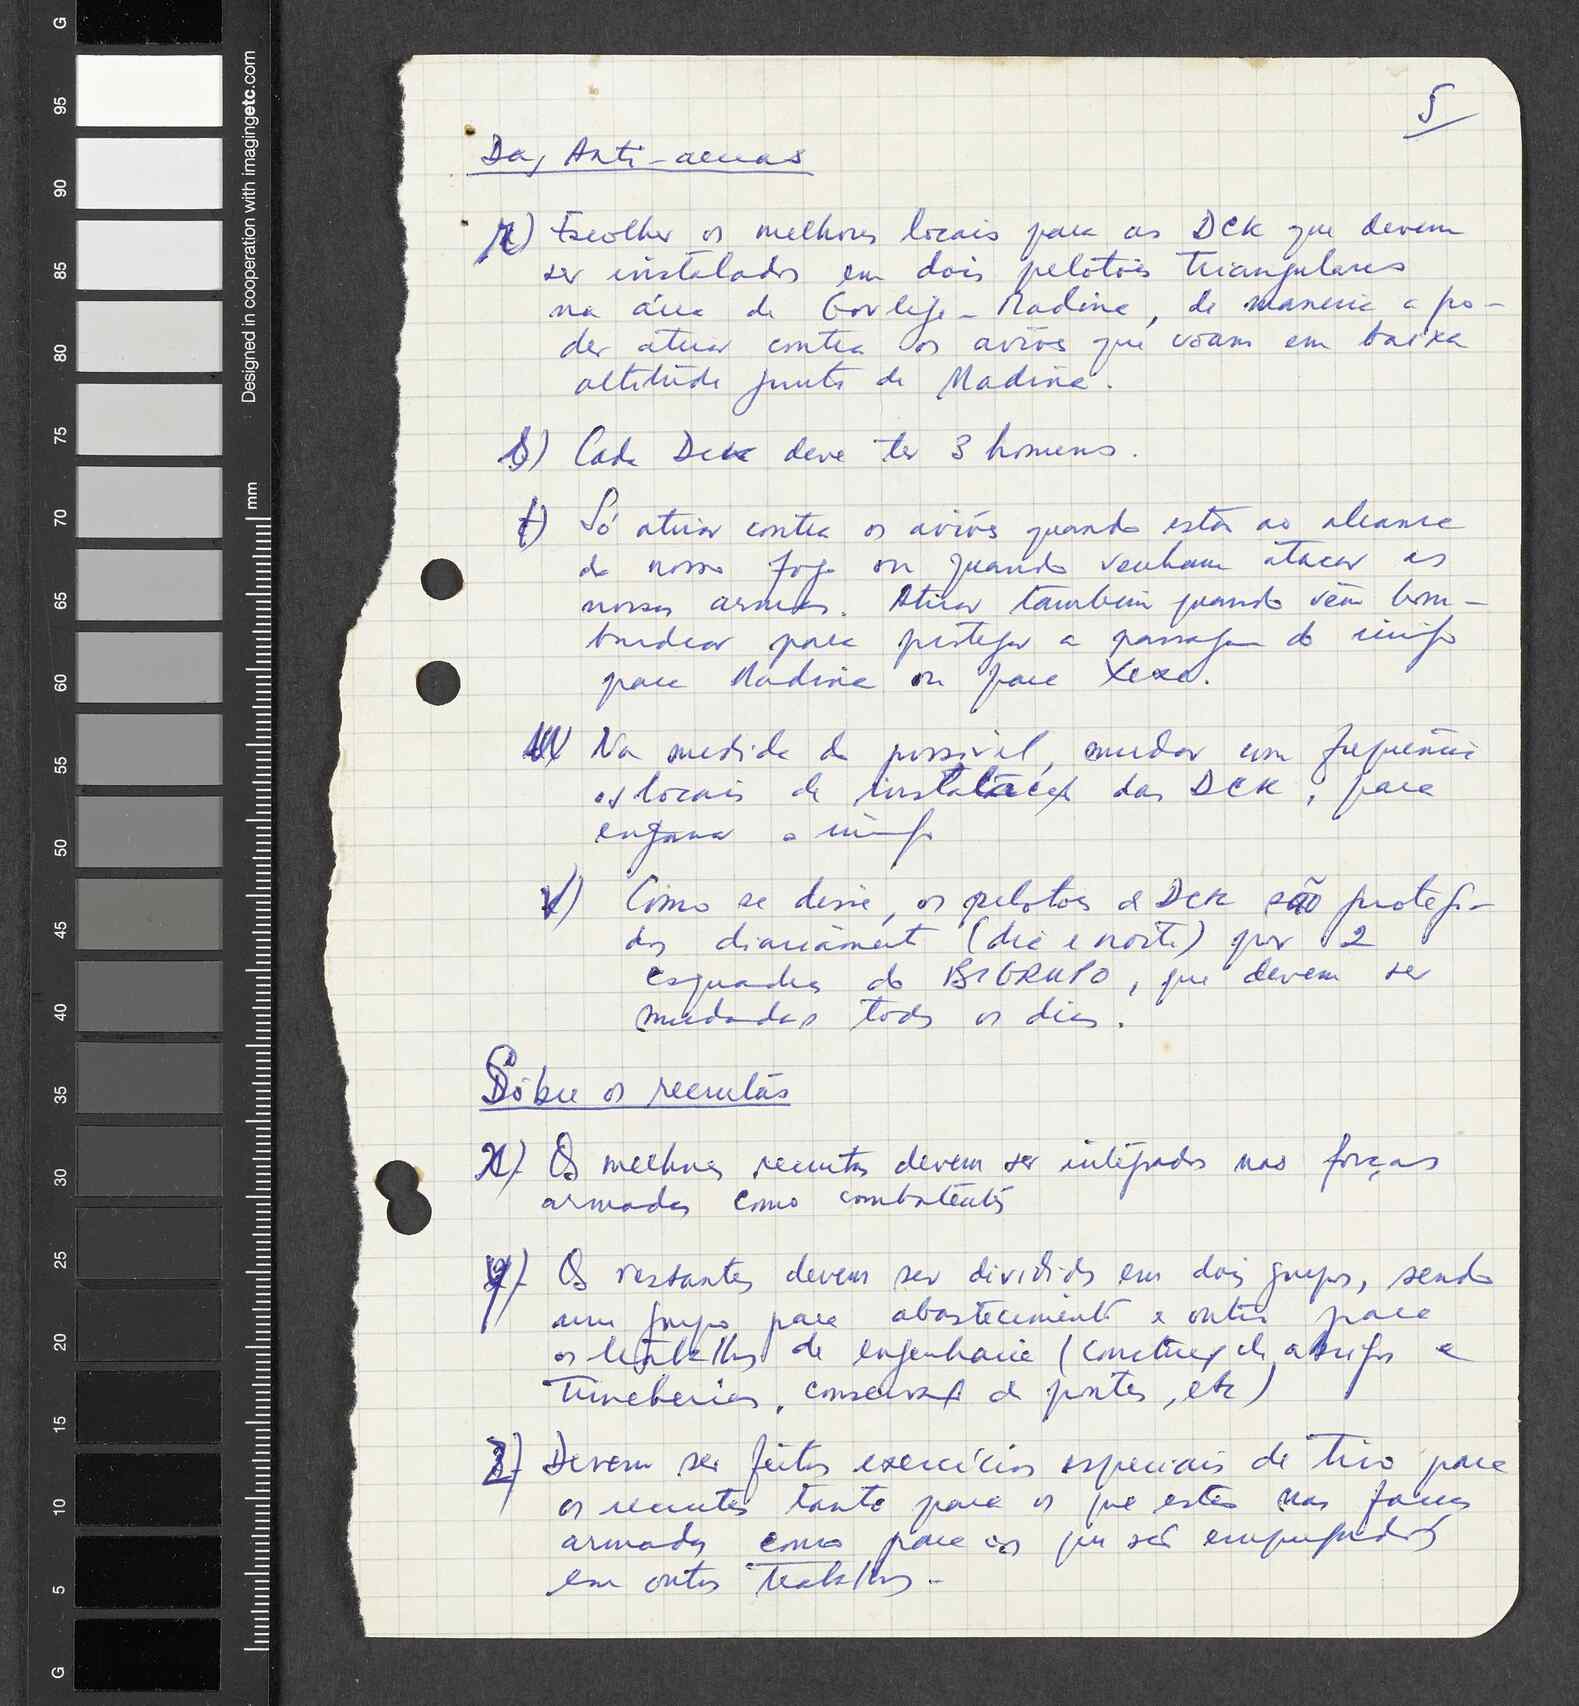 5
Das Anti-aereas
r) Escolher os melhores locais para as DCK que devem
ser instalados em dois pelotões triangulares
na área de Govleije - Madina, de maneira a po-
der atuar contra os aviões que voam em baixa
altitude junto de Madina.
s) Cada DCK deve ter 3 homens.
t) Só atirar contra os aviões quando estão ao alcance
do nosso fogo ou quando venham atacar as
nossas armas. Atirar também quando vêm bom-
bardear para proteger a passagem do inimigo
para Madina ou para Xexe.
Na medida do possível, mudar com frequência
os locais de instalação das DCK, para
enganar o inimigo
v) Como se disse, os pelotões de DCK são protegi-
dos diariamente (dia e noite) por 2
esquadras do BIGRUPO, que devem ser
mudadas todos os dias.
Sôbre os recrutas
x) Os melhores recrutas devem ser integrados nas forças
armadas como combatentes
y) Os restantes devem ser divididos em dois grupos, sendo
um grupo para abastecimento e outro para
os trabalhos de engenharia (construção de abrigos e
trincheiras, conservação de pontes, etc)
z) Devem ser feitos exercícios especiais de tiro para
os recrutas tanto para os que estão nas forças
armadas como para os que são empregados
em outros trabalhos.
Designed in cooperation with imagingetc.com
mm
G
95
90
85
80
75
70
65
60
55
50
45
40
35
30
25
20
15
10
5
G